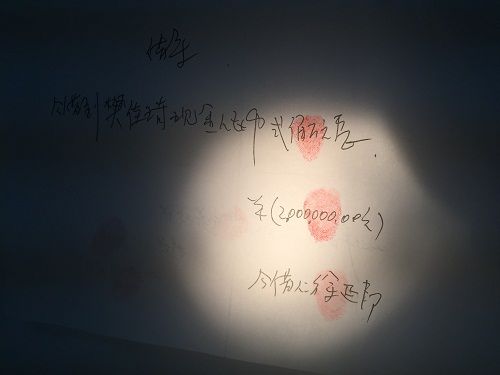 借条
今借到樊佳琦现金人民币贰佰万元
整(2000000.00元)
今借人徐延